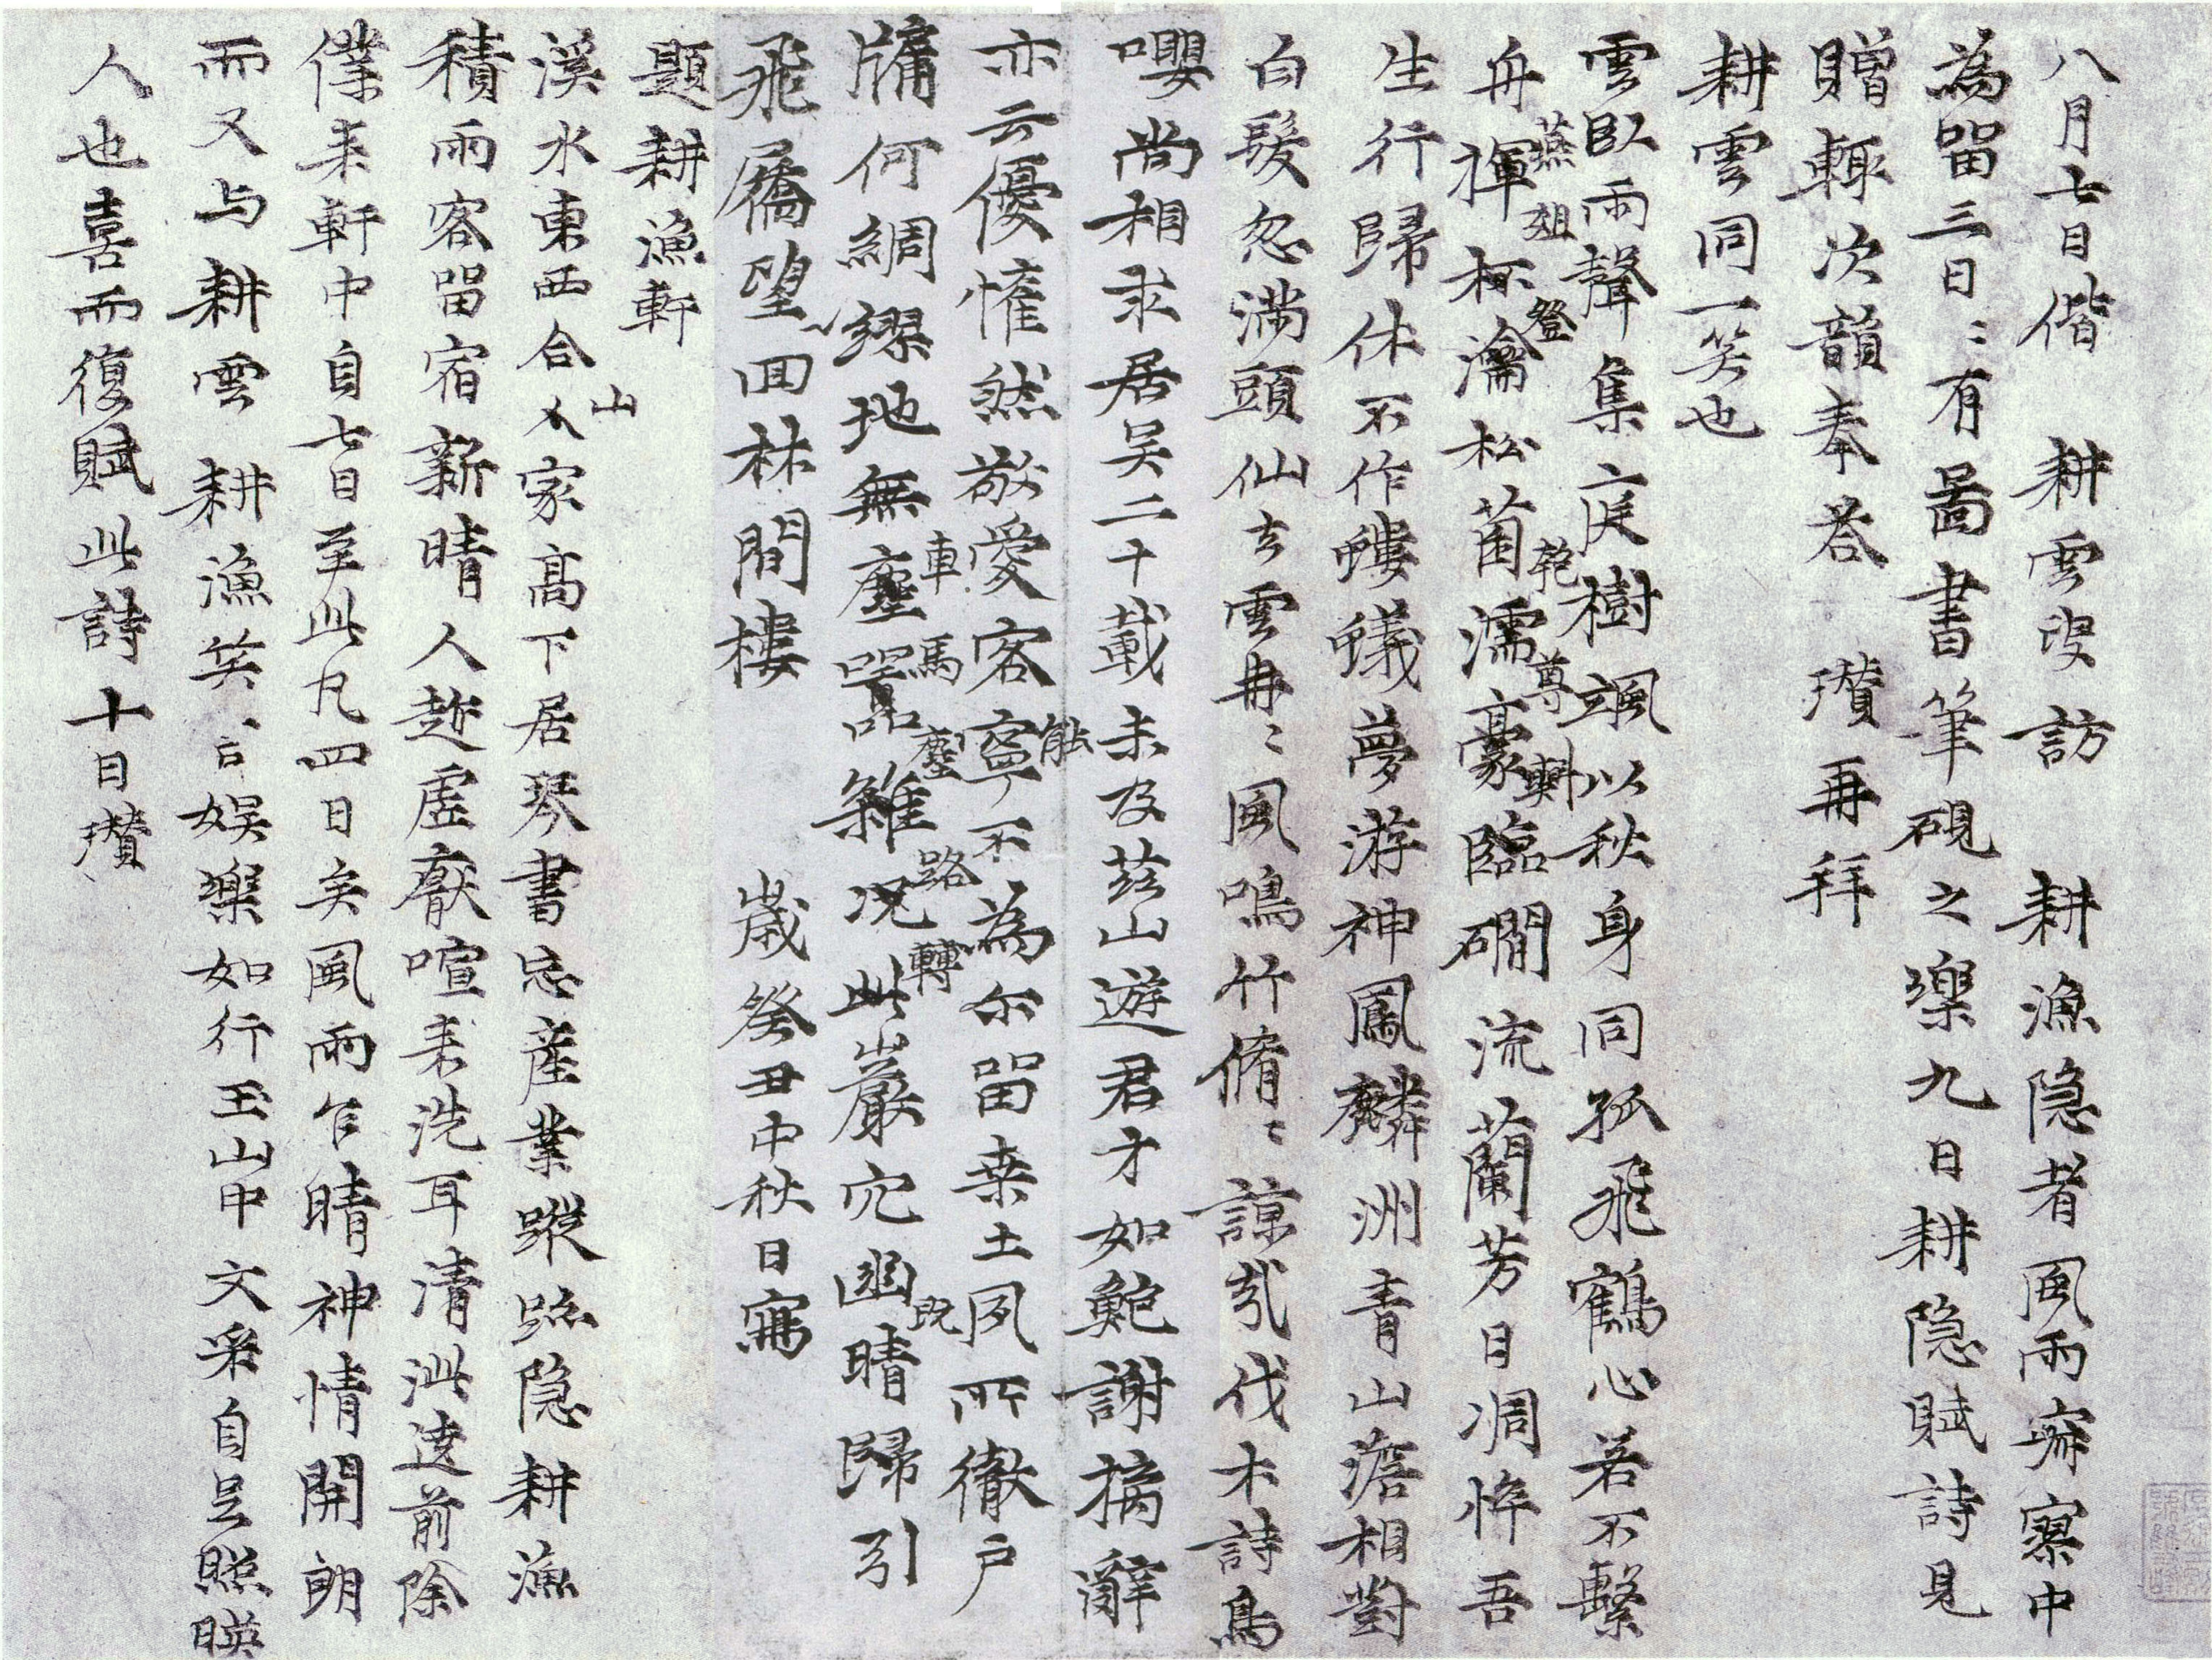 八月七日偕　耕雲叟訪　耕漁隐者風雨寂寥中
為留三日〻有啚書筆硯之樂九日耕隐賦詩見
贈輙次韻奉荅　瓚再拜
耕雲同一笑也
雲臥雨聲集庭樹颯以秋身同孤飛鶴心若不繫
舟燕俎登乾尊斝
揮杯瀹松菌濡豪臨磵流蘭芳日凋悴吾
生行歸休不作螻蟻夢游神鳳麟洲青山澹相對
白髮忽滿頭仙去雲冉〻風鳴竹脩〻諒哉伐木詩鳥
嚶尚相求居吴二十載未及茲山遊君才如鮑謝摛辭
亦云優惟然敬愛客寧不能為尔留桒土夙所徹戶
牖何綢繆地無塵嚣雜况此巖穴幽晴歸引
車馬塵路轉既
飛屩望〻回林間樓　歲癸丑中秋日寫
題耕漁軒
溪水東西合山家高下居琴書忘產業蹤跡隐耕漁
積雨客留宿新晴人趂虛厭喧来洗耳清泚遶前除
僕来軒中自七日至此凡四日矣風雨乍晴神情開朗
而又与耕雲　耕漁笑〻言娱樂如行玉山中文采自足照暎
人也喜而復賦此詩十日瓚